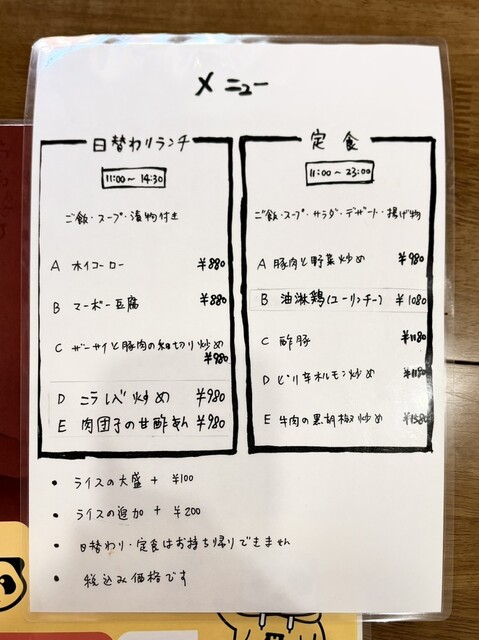 メニュー
日替わりランチ
11:00〜14:30
ご飯・スープ・漬物付き
A ホイコーロー ¥880
B マーボー豆腐 ¥880
C ザーサイと豚肉の細切り炒め
¥980
D ニラレバ炒め ¥980
E 肉団子の甘酢あん ¥980
定食
11:00〜23:00
ご飯・スープ・サラダ・デザート・揚げ物
A 豚肉と野菜炒め ¥980
B 油淋鶏(ユーリンチー) ¥1080
C 酢豚 ¥1180
D ピリ辛ホルモン炒め ¥1180
E 牛肉の黒胡椒炒め
・ライスの大盛 + ¥100
・ライスの追加 + ¥200
・日替わり・定食はお持ち帰りできません
・税込み価格です